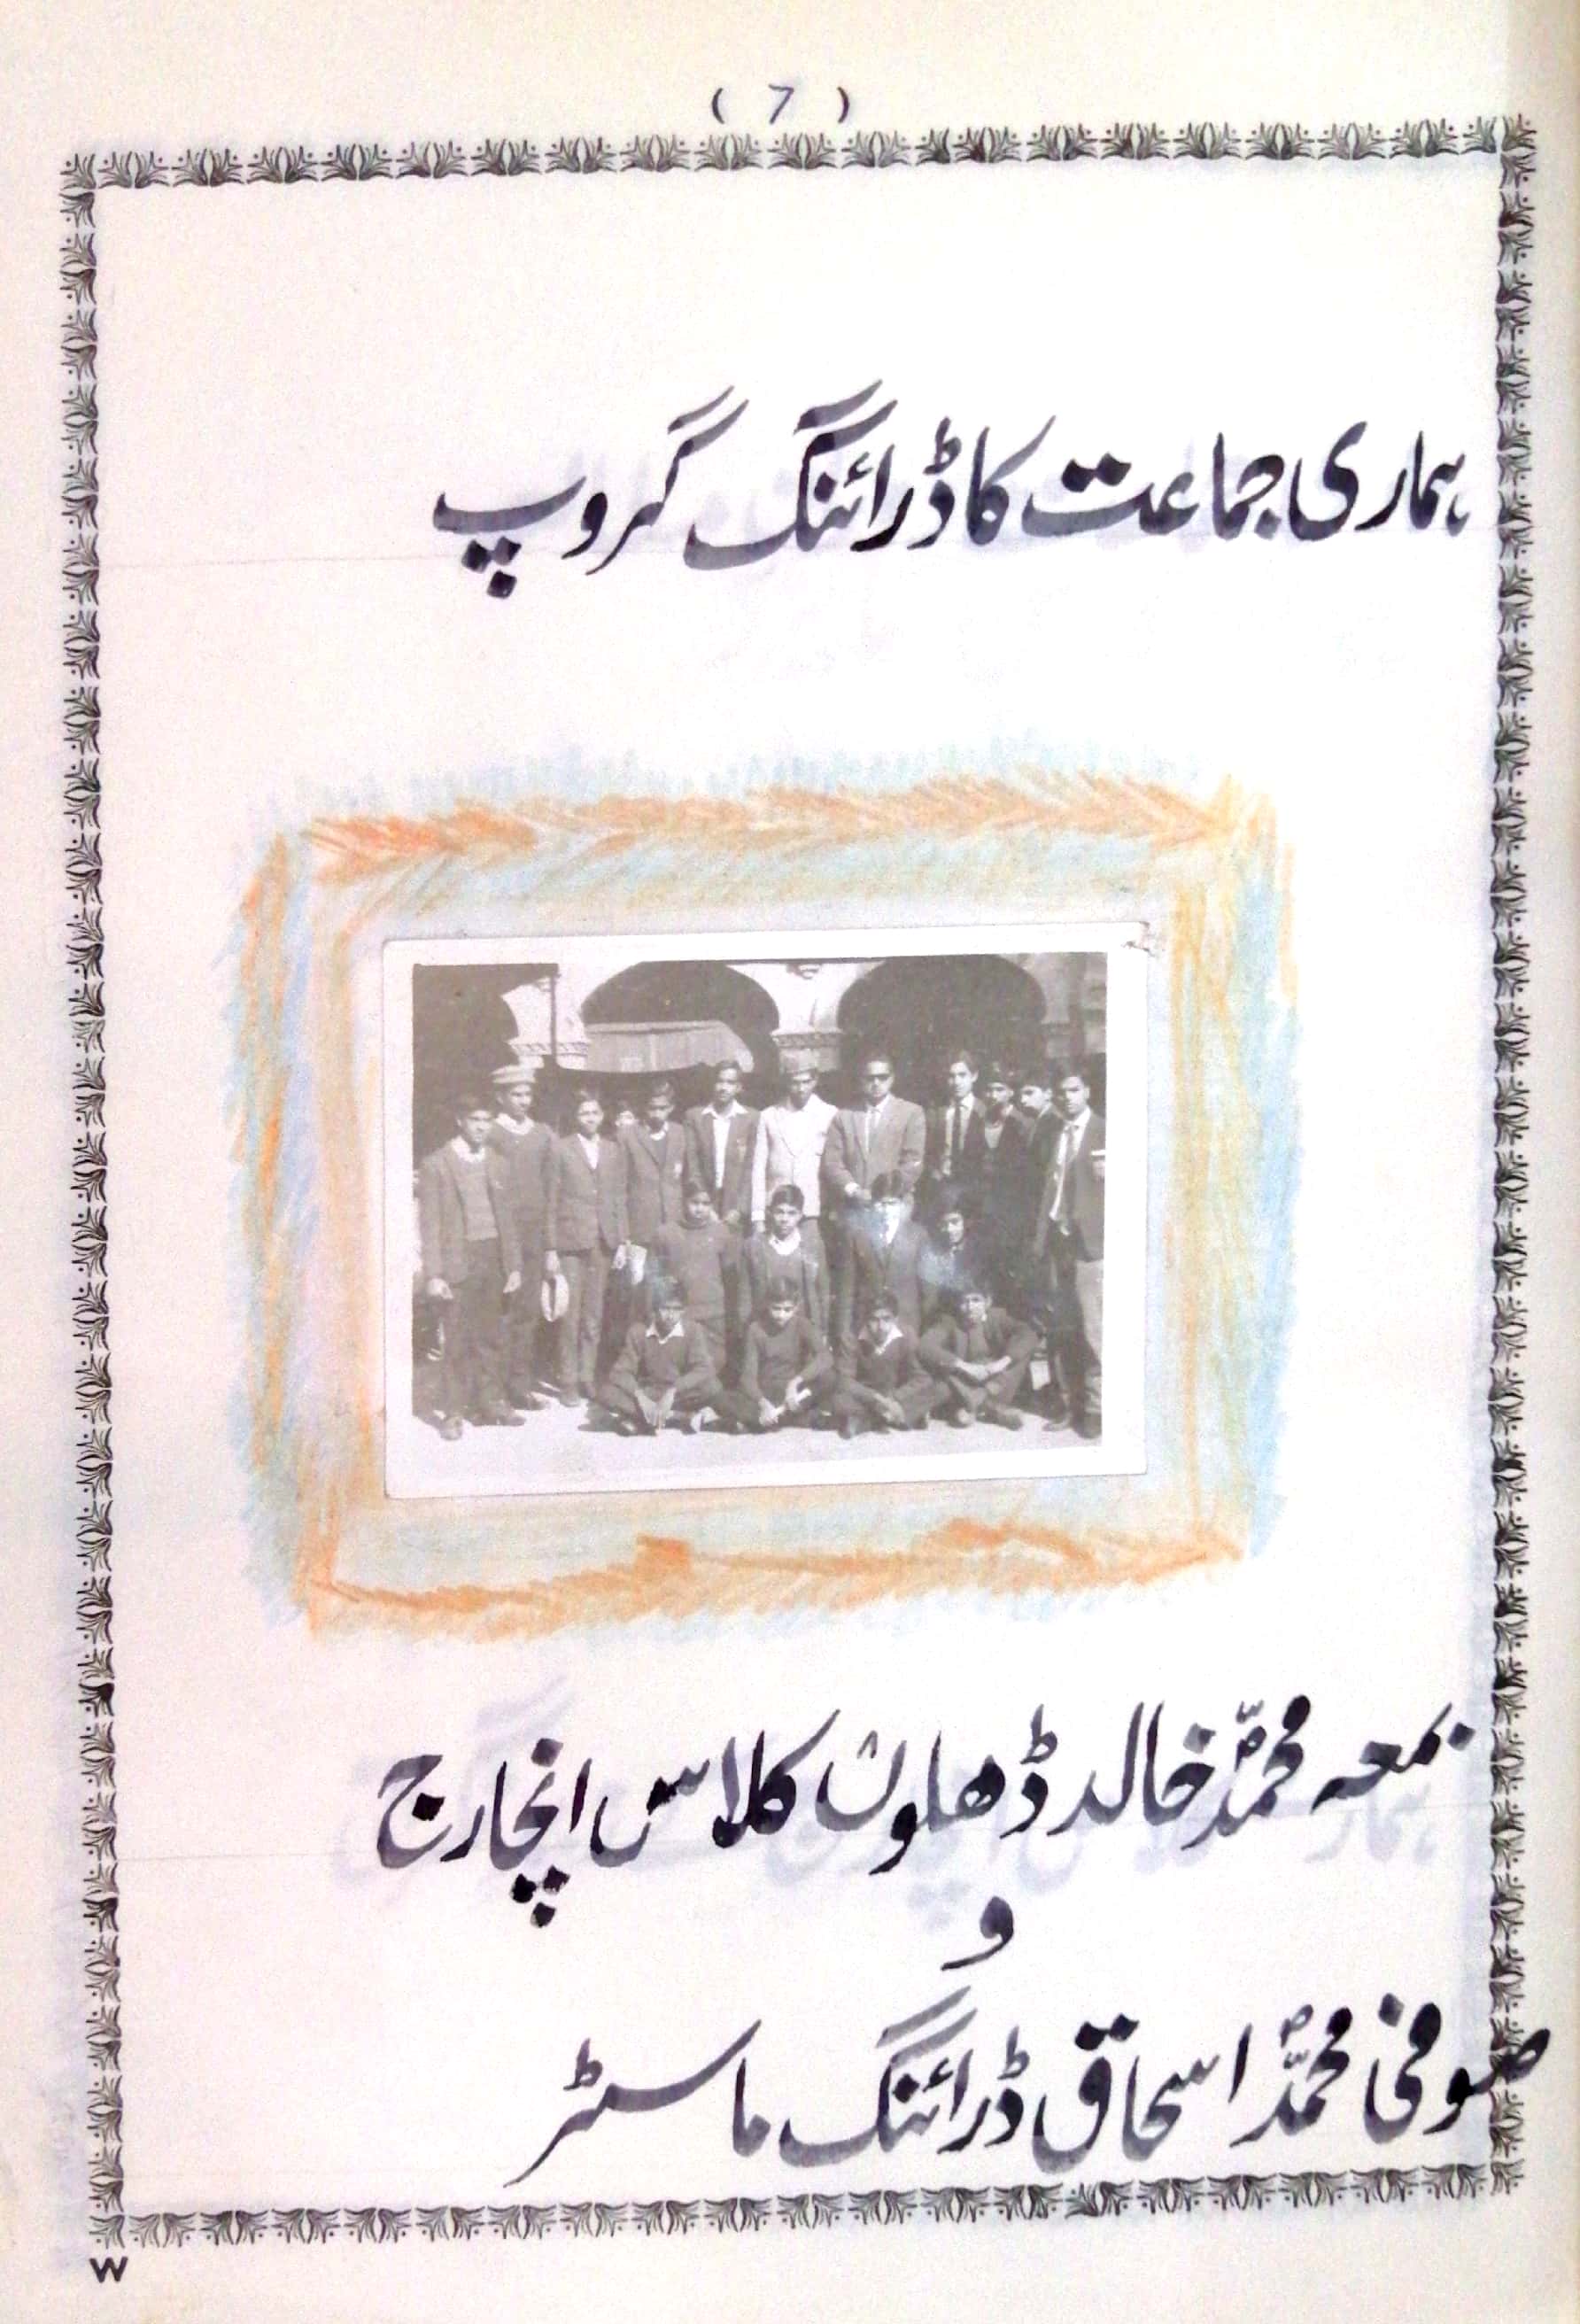 ( 7 )
ہماری جماعت کا ڈرائنگ گروپ
بمعہ محمدؐ خالد ڈھلوں کلاس انچارج
و
صوفی محمدؐ اسحاق ڈرائنگ ماسٹر
W